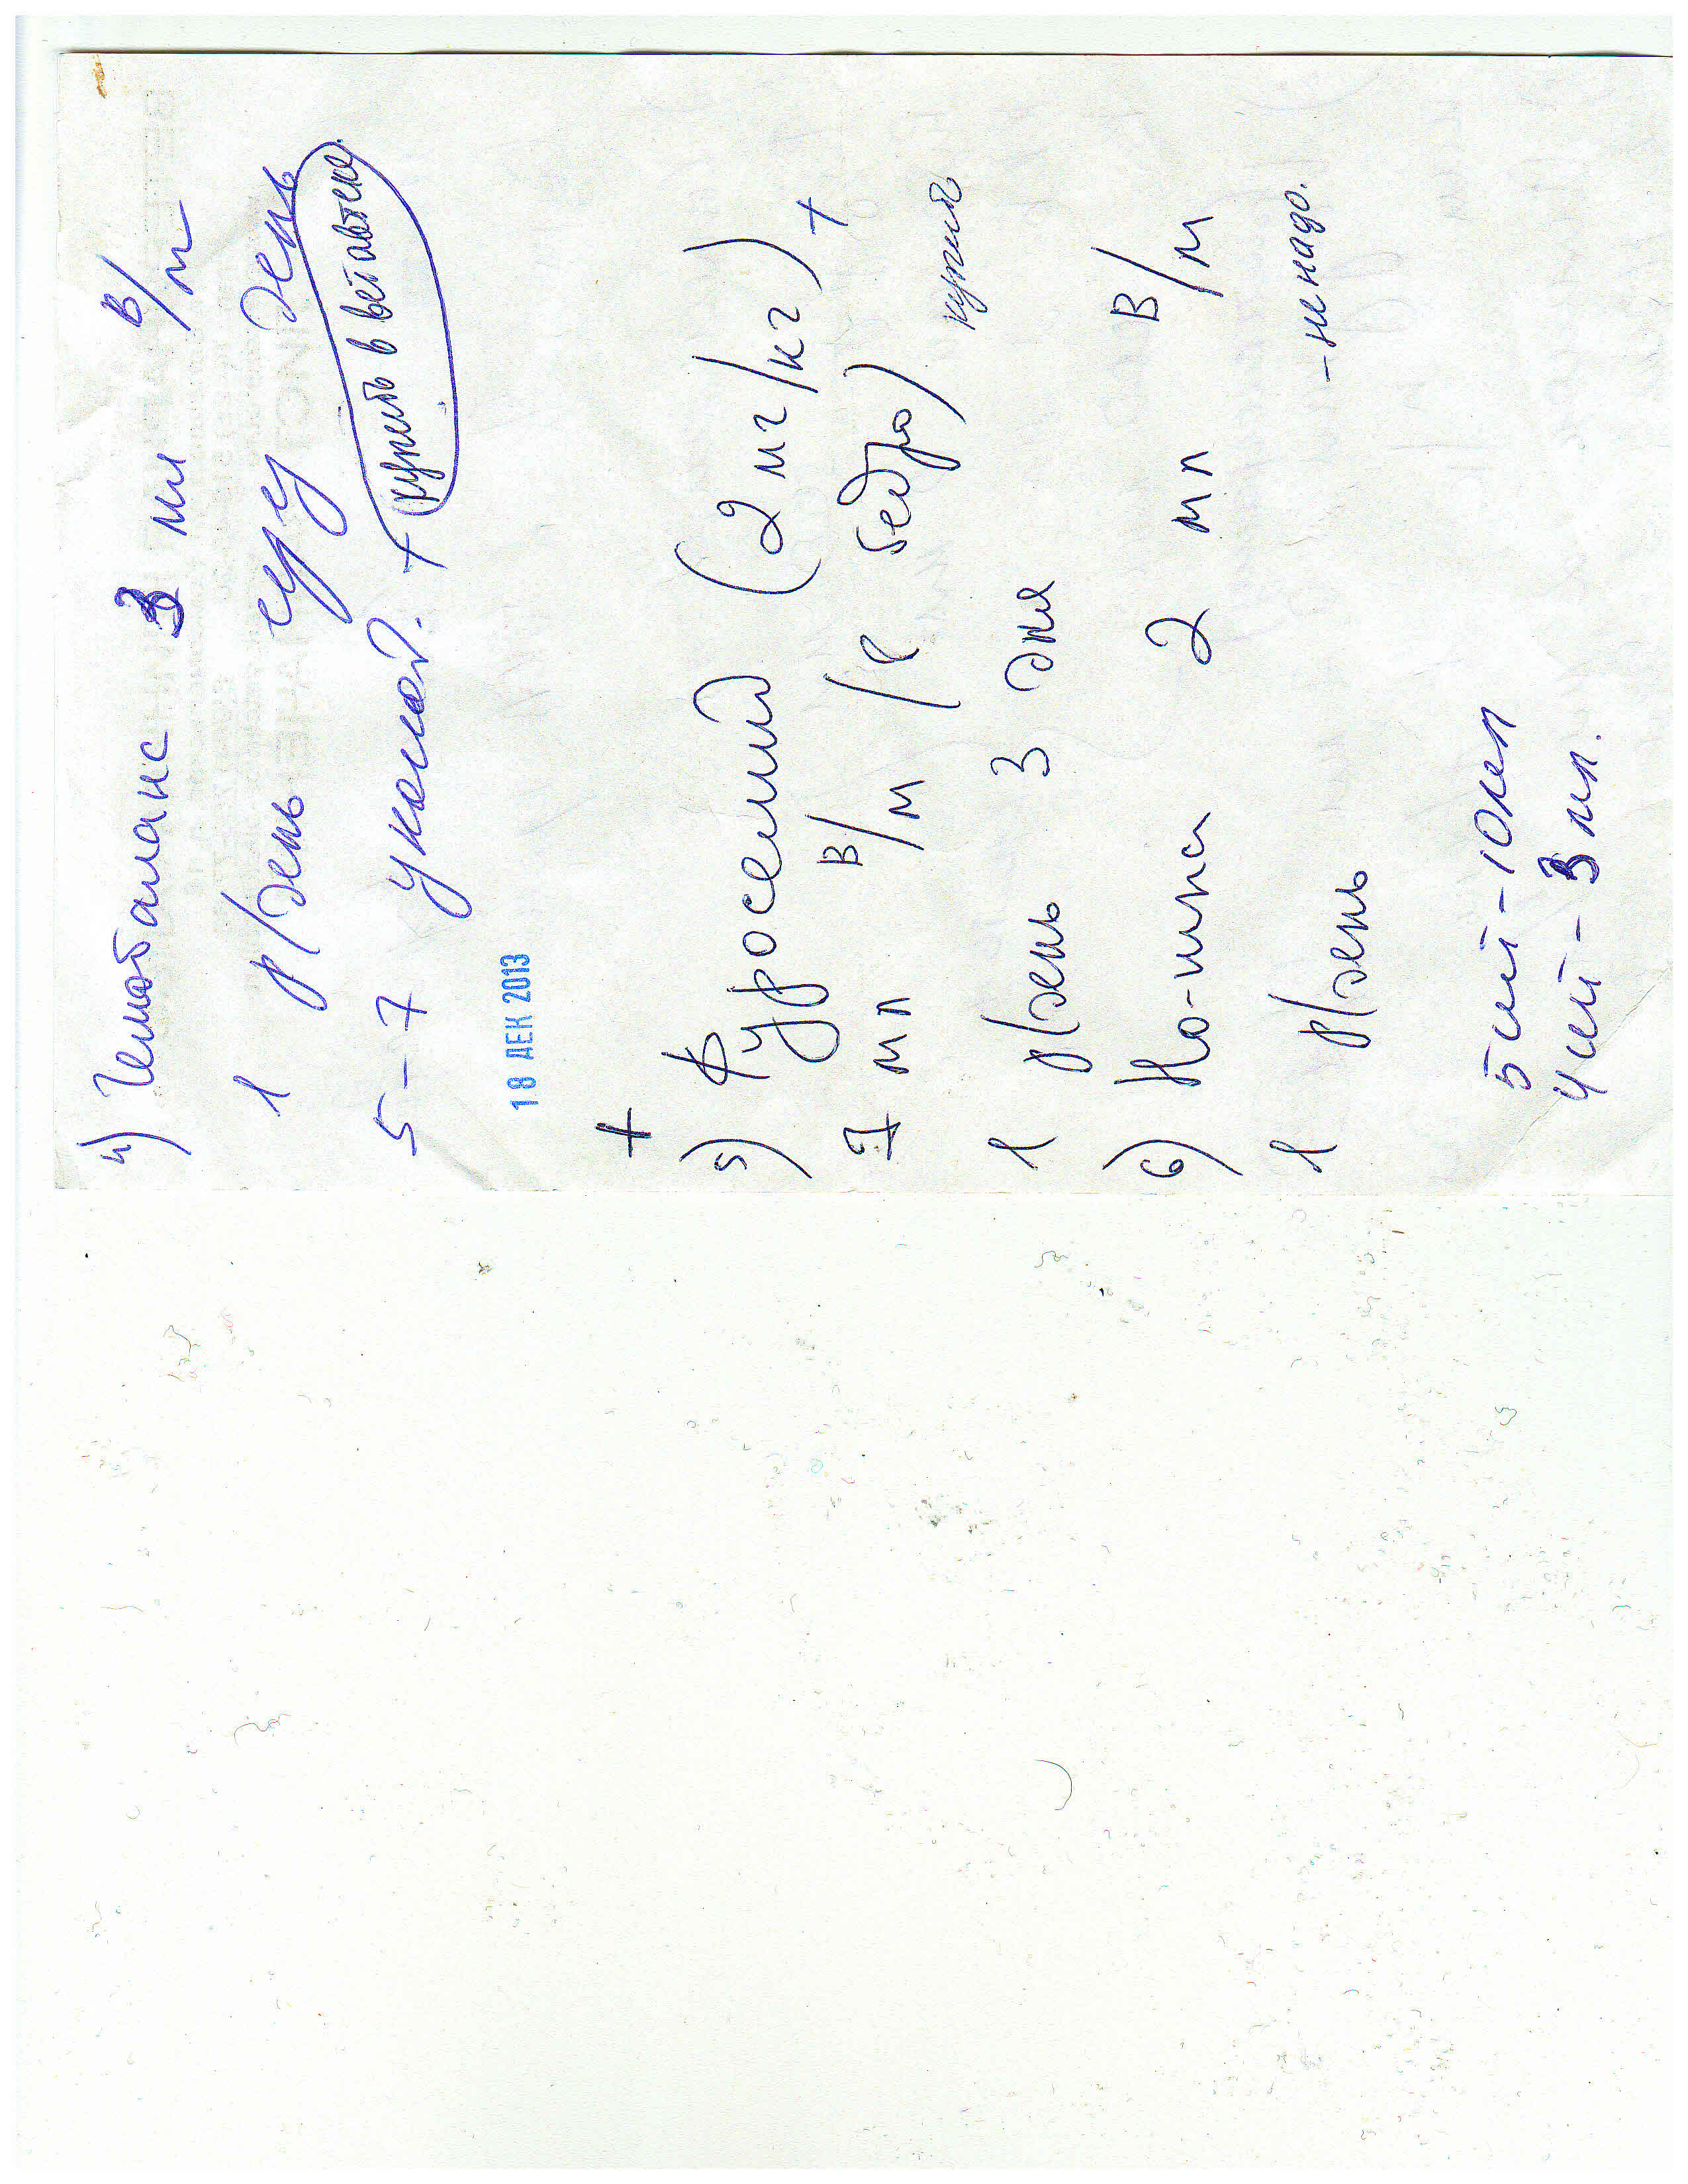 4) Гемобаланс 3 мл в/м
1 р/день ч/з день
5 - 7 уколов. + купить в ветаптеке.
18 ДЕК 2013
+
5) Фуросемид (2 мг/кг) +
1 мл в/м (в бедро) купить
1 р/день 3 дня
6) Но-шпа 2 мл в/м
1 р/день - не надо.
5 шт - 10 мл
4 шт - 3 мл.